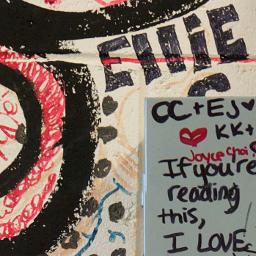 Ellie
OC + EJ ♥
♥ KK +
Joyce Choi
If you're
reading
this,
I LOVE